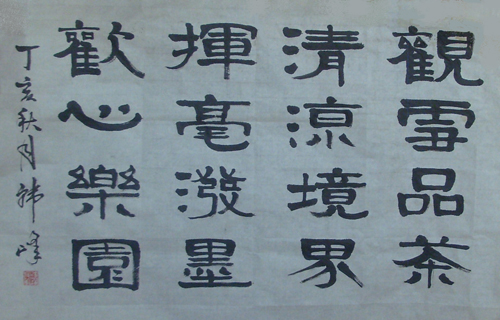 觀雪品茶
清涼境界
揮毫潑墨
歡心樂園
丁亥秋月韩峰